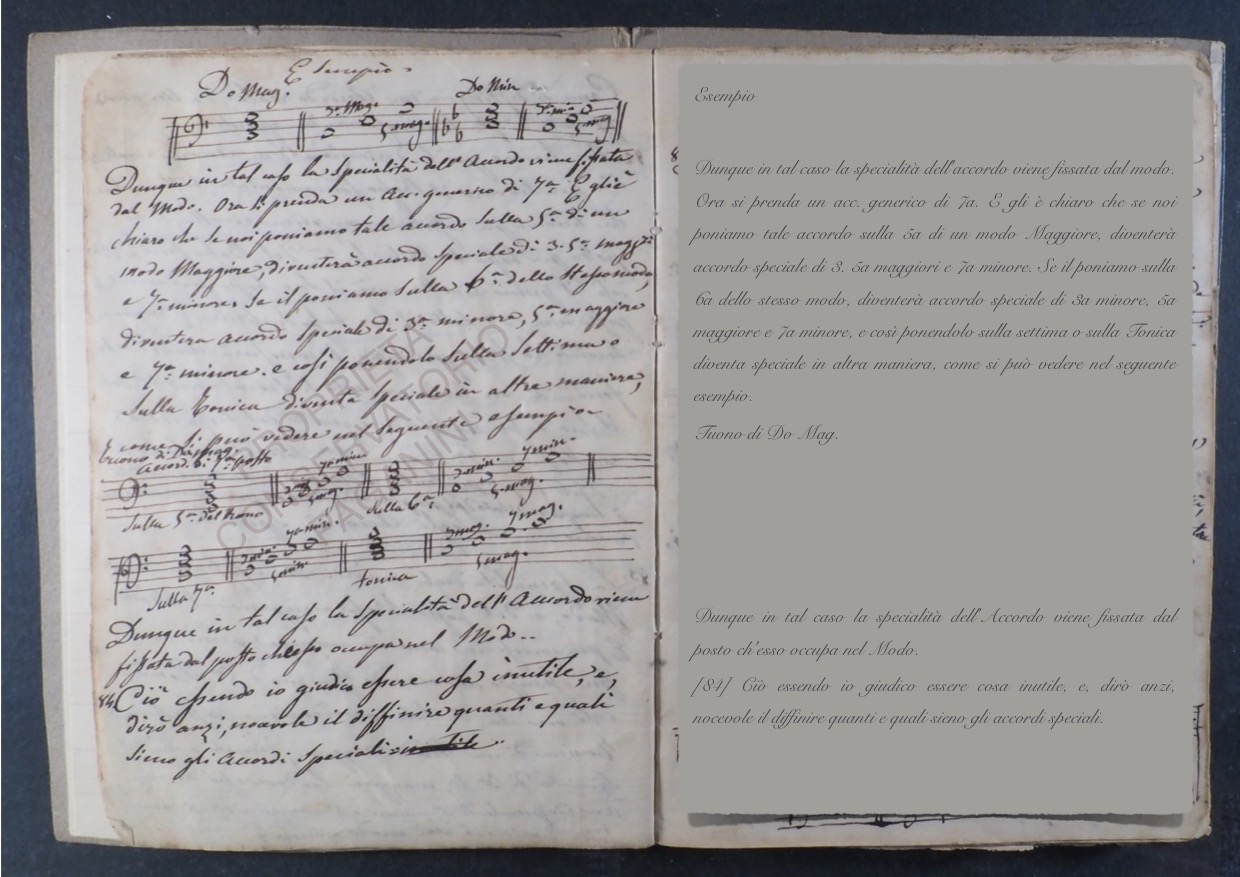 Esempio
Do Mag.
Do Min
3ª Mag.
5 mag.
3ª min
5 mag
Dunque in tal caso la specialità dell'Accordo viene fissata
dal Modo. Ora si prenda un Acc. generico di 7ª E gli è
chiaro che se noi poniamo tale accordo sulla 5ª di un
modo Maggiore, diventerà accordo speciale di 3. 5ª magg:i
e 7ª minore. Se il poniamo sulla 6ª dello stesso modo,
diventera accordo speciale di 3ª minore, 5ª maggiore
e 7ª minore. e così ponendolo sulla Settima o
sulla Tonica diventa speciale in altra maniera,
come si può vedere nel seguente esempio
Tuono di Do mag.
Accord. di 7ª posto
7ª min
5 mag.
3 min.
7 min.
5 mag.
Sulla 5ª del tuono
sulla 6ª
3 min.
7 min.
5 min
3 mag.
7 mag.
5 mag.
Sulla 7ª
tonica
Dunque in tal caso la specialità dell'Accordo viene
fissata dal posto ch'esso occupa nel Modo..
84 Ciò essendo io giudico essere cosa inutile, e,
dirò anzi, nocevole il diffinire quanti e quali
sieno gli accordi speciali inutile
PROPRIETÀ
CONSERVATORIO
PAGANINI
Esempio
Dunque in tal caso la specialità dell'accordo viene fissata dal modo.
Ora si prenda un acc. generico di 7a. E gli è chiaro che se noi
poniamo tale accordo sulla 5a di un modo Maggiore, diventerà
accordo speciale di 3. 5a maggiori e 7a minore. Se il poniamo sulla
6a dello stesso modo, diventerà accordo speciale di 3a minore, 5a
maggiore e 7a minore, e così ponendolo sulla settima o sulla Tonica
diventa speciale in altra maniera, come si può vedere nel seguente
esempio.
Tuono di Do Mag.
Dunque in tal caso la specialità dell'Accordo viene fissata dal
posto ch'esso occupa nel Modo.
[84] Ciò essendo io giudico essere cosa inutile, e, dirò anzi,
nocevole il diffinire quanti e quali sieno gli accordi speciali.